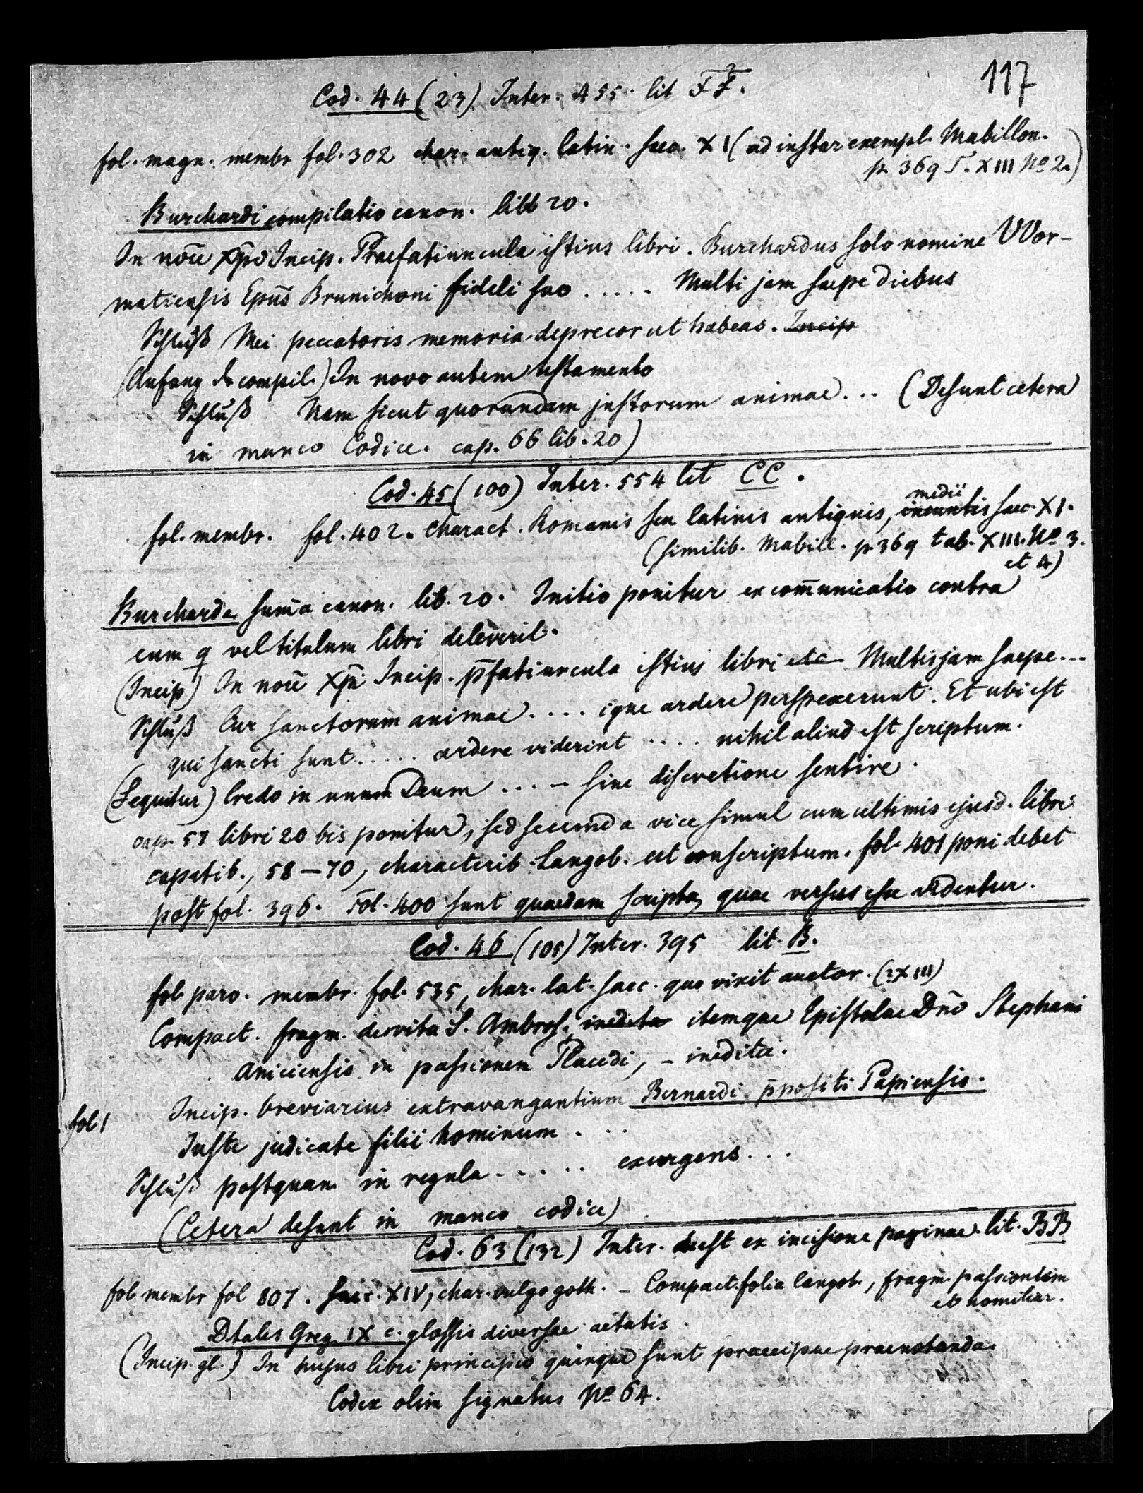 117
Cod. 44 (23) Inter. 455. lit FF.
fol. magn. membr fol. 302 char. antiq. latin. saec. XI (ad instar exempl. Mabillon.
p. 369 T. XIII No 2.)
Burchardi compilatio canon. libb 20.
In noĩe Xpi Incip. Praefatiuncula istius libri. Burchardus solo nomine VVor-
matiensis Epũs Brunichoni fideli suo ..... Multi jam saepe diebus
Schluß Mei peccatoris memoria deprecor ut habeas. Incip
(Anfang d. compil.) In novo autem testamento
Schluß Nam sicut quorundam justorum animae... (Desunt cetera
in manco Codice. cap. 66 lib. 20)
Cod. 45 (100) Inter. 554 lit CC.
medii
fol. membr. fol. 402. Charact. Romanis seu latinis antiquis, ineuntis saec. XI.
(similib. Mabill. p 369 tab. XIII. No 3.
et 4)
Burcharde sum̃a canon. lib. 20. Initio ponitur excom̃unicatio contra
eum q vel titulum libri deleverit.
(Incip) In noĩe Xpi Incip. p̃fatiuncula istius libri etc Multis jam saepe...
Schluß Cur sanctorum animae .... igne ardere perspexerunt. Et ubi est
qui sancti sunt ..... ardere viderint .... nihil aliud est scriptum.
(Sequitur) Credo in unum Deum ... – sine discretione sentire.
cap. 57 libri 20 bis ponitur, sed secunda vice simul cum ultimis ejusd. libri
capatib., 58–70, characterib. Langob. est conscriptum. fol. 401 poni debet
post fol. 396. Fol. 400 sunt quaedam scripta, quae versus esse videntur.
Cod. 46 (105) Inter. 395 lit. B.
fol. parv. membr. fol. 535, char. lat. saec. quo vixit auctor. (XIII)
Compact. fragm. de vita S. Ambros. inedita itemque Epistolae Dñi Stephani
Aniciensis in passionem Placidi, – inedita.
fol. 1 Incip. breviarius extravangantium Bernardi p̃positi Papiensis.
Juste judicate filii hominum . . .
Schluß postquam in regula ..... exurgens ...
(Cetera desunt in manco codice)
Cod. 63 (132) Inter. deest ex incisione paginae lit. BB
fol. membr fol 807. saec. XIV, char. vulgo goth. – Compact. folia langob, fragm. passionum
et homiliar.
Dtales Greg. IX c. glossis diversae aetatis
(Incip. gl.) In hujus libri principio quinque sunt praecipue praenotanda.
Codex olim signatus No 64.